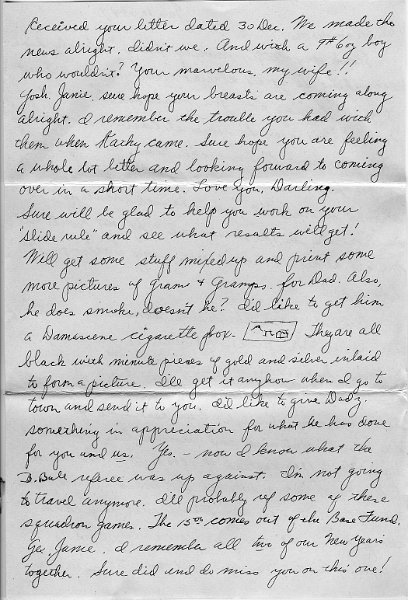 Received your letter dated 30 Dec. We made the
news alright, didn't we. And with a 7# 6oz boy
who wouldn't? Your marvelous, my wife!!
Gosh, Janie, sure hope your breasts are coming along
alright. I remember the trouble you had with
them when Kathy came. Sure hope you are feeling
a whole lot better and looking forward to coming
over in a short time. Love you, Darling.
Sure will be glad to help you work on your
"slide rule" and see what results will get!
Will get some stuff mixed up and print some
more pictures of Gram & Gramps. for Dad. Also,
he does smoke, doesn't he? I'd like to get him
a Damascene cigarette box. They are all
black with minute pieces of gold and silver inlaid
to form a picture. I'll get it anyhow when I go to
town and send it to you. I'd like to give Dad z.
something in appreciation for what he has done
for you and us. Yes. - now I know what the
B. Ball referee was up against. I'm not going
to travel anymore. I'll probably ref some of these
squadron games. The 15th comes out of the Base Fund.
Yes, Janie, I remember all two of our New Years
together. Sure did and do miss you on this one!